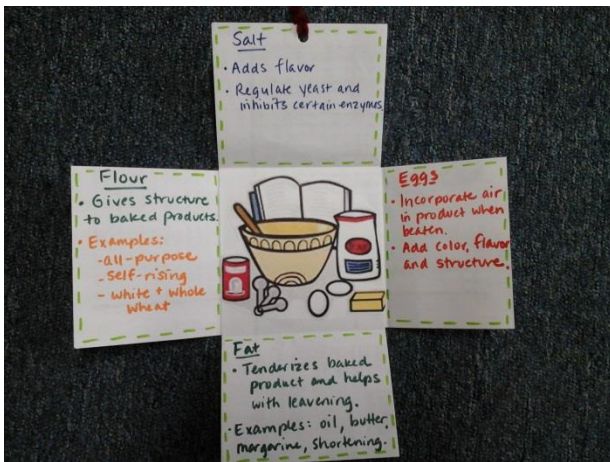 Salt
• Adds flavor
• Regulate yeast and
inhibits certain enzymes.
Flour
• Gives structure
to baked products.
• Examples:
- all-purpose
- self-rising
- white + whole
wheat
Eggs
• Incorporate air
in product when
beaten.
• Add color, flavor
and structure.
Fat
• Tenderizes baked
product and helps
with leavening.
• Examples: oil, butter,
margarine, shortening.